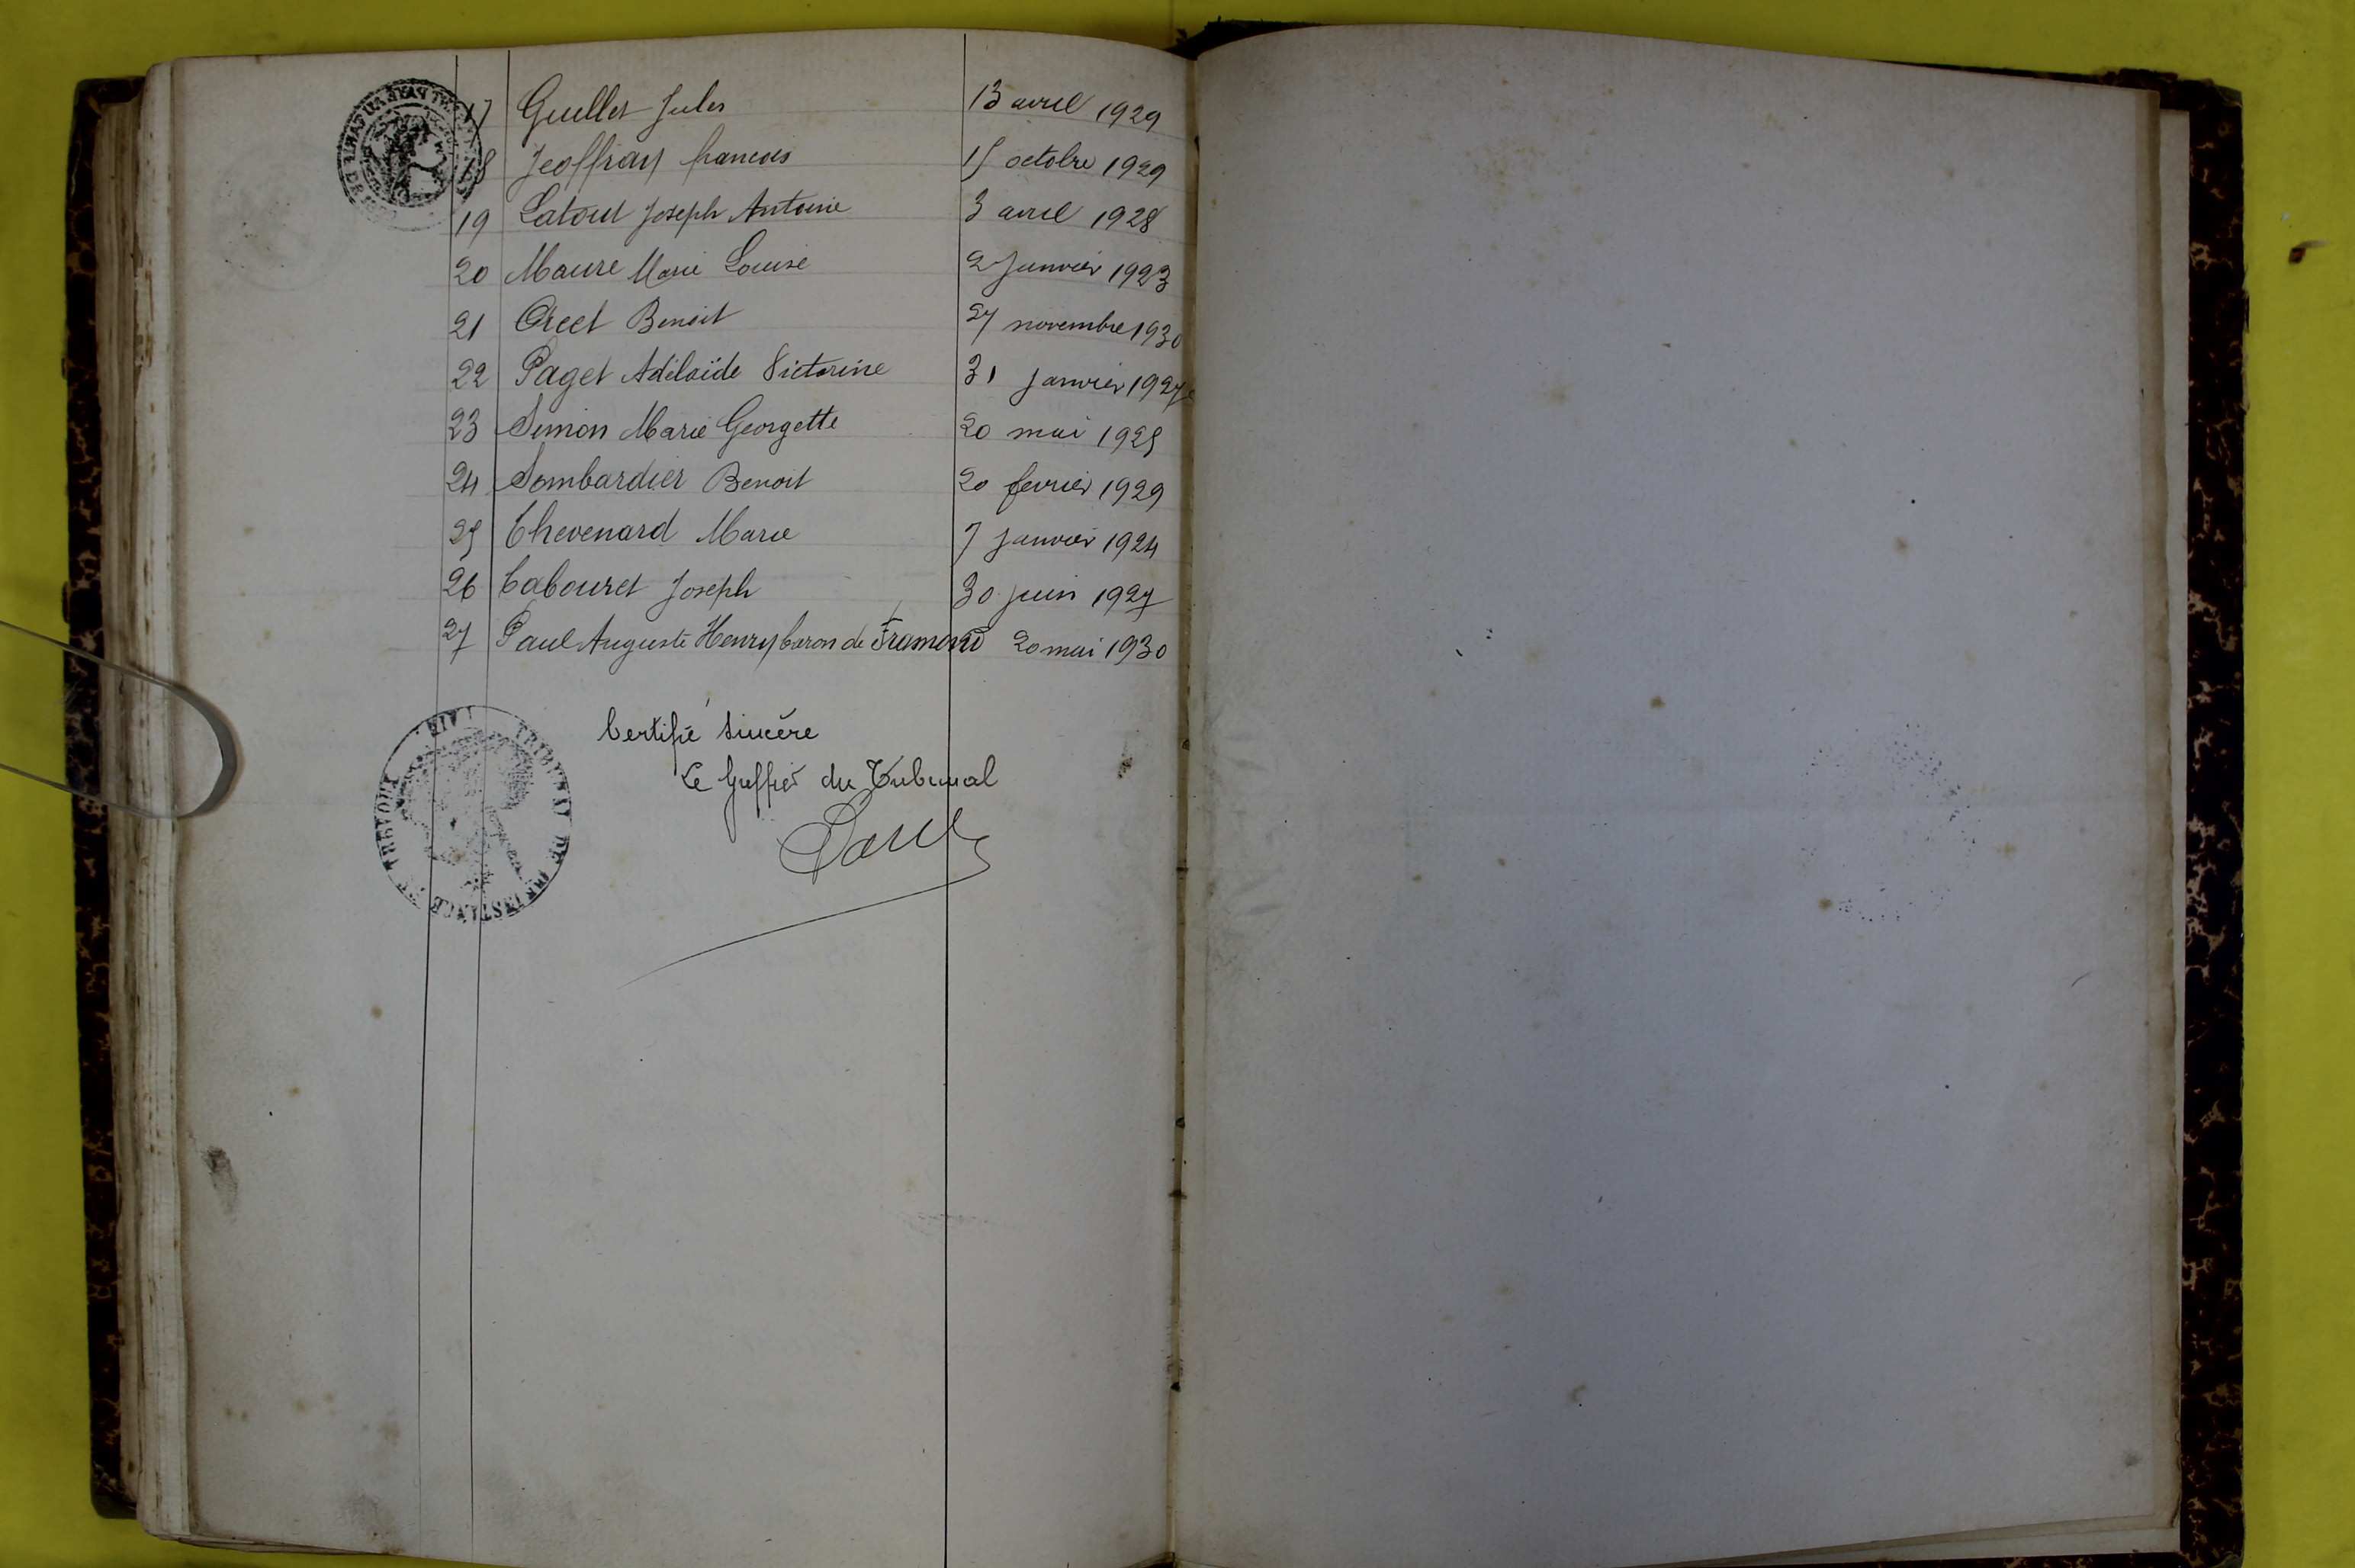 17 Guillet Jules 13 avril 1929
18 Jeoffray francois 15 octobre 1929
19 Latout Joseph Antoine 3 avril 1928
20 Maure Marie Louise 2 Janvier 1923
21 Orcet Benoit 27 novembre 1930
22 Paget Adélaïde Victorine 31 janvier 1927
23 Simon Marie Georgette 20 mai 1925
24 Sombardier Benoit 20 fevrier 1929
25 Thevenard Marie 7 janvier 1924
26 Tabouret Joseph 30 juin 1927
27 Paul Auguste Henry baron de Framond 20 mai 1930
Certifié sincère
Le Greffier du Tribunal
TRIBUNAL DE 1ERE INSTANCE DE TREVOUX